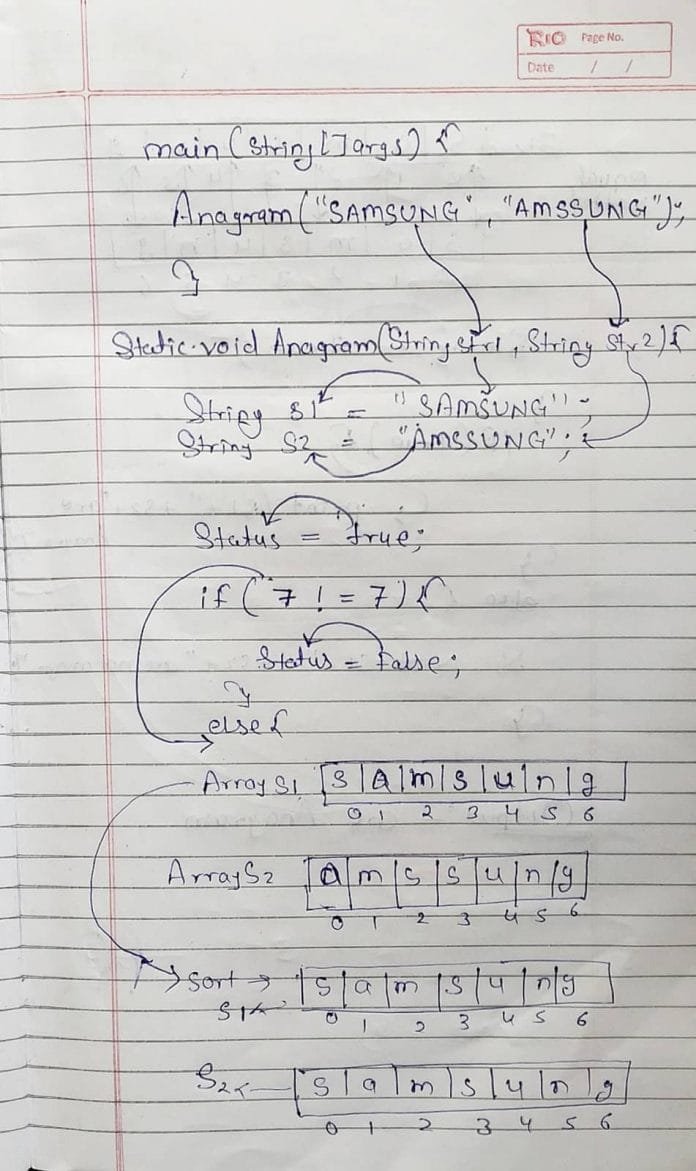 RIO Page No.
Date / /
main (String [] args) {
Anagram ("SAMSUNG", "AMSSUNG");
}
Static void Anagram (String str1, String Str2) {
String S1 = "SAMSUNG";
String S2 = "AMSSUNG";
Status = true;
if (7 != 7) {
Status = False;
}
else {
Array S1 |s|a|m|s|u|n|g|
0 1 2 3 4 5 6
Array S2 |a|m|s|s|u|n|g|
0 1 2 3 4 5 6
Sort → |s|a|m|s|u|n|g|
S1
0 1 2 3 4 5 6
S2 |s|a|m|s|u|n|g|
0 1 2 3 4 5 6